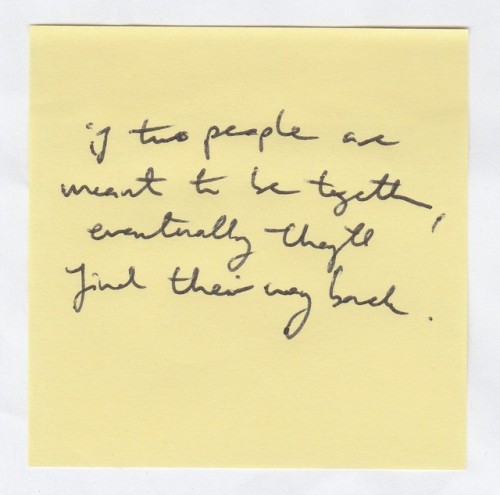 if two people are
meant to be together,
eventually they'll
find their way back.